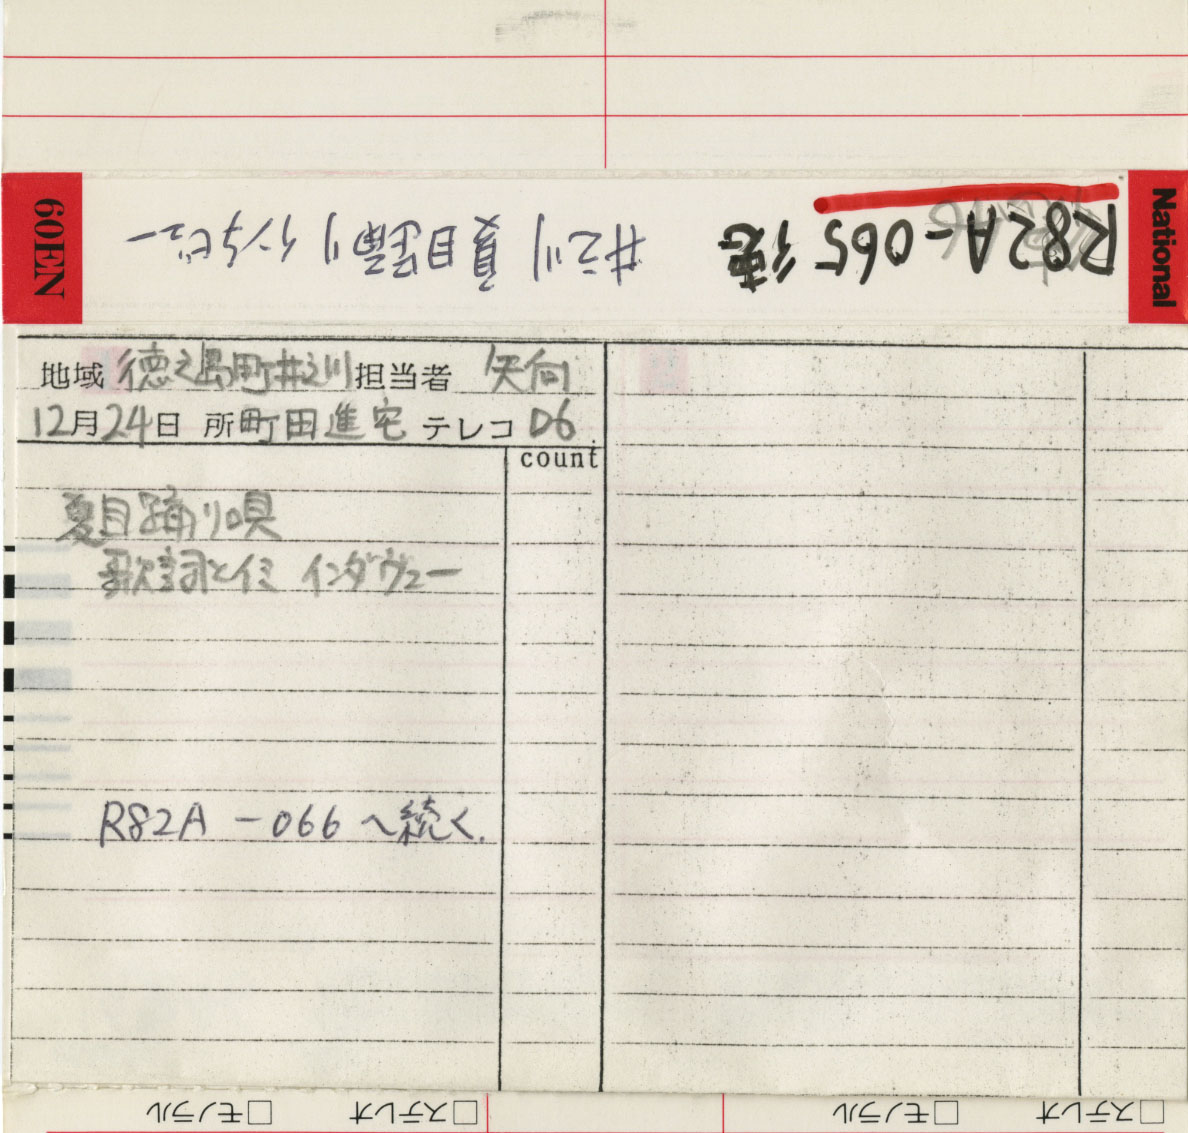 National
R82A-065 徳 井之川 夏目踊り インタビュー
60EN
地域 徳之島町井之川 担当者 矢向
12月24日 所 町田進宅 テレコ D6
count
夏目踊り唄
歌詞とイミ インタヴュー
R82A-066へ続く.
□ステレオ □モノラル □ステレオ □モノラル